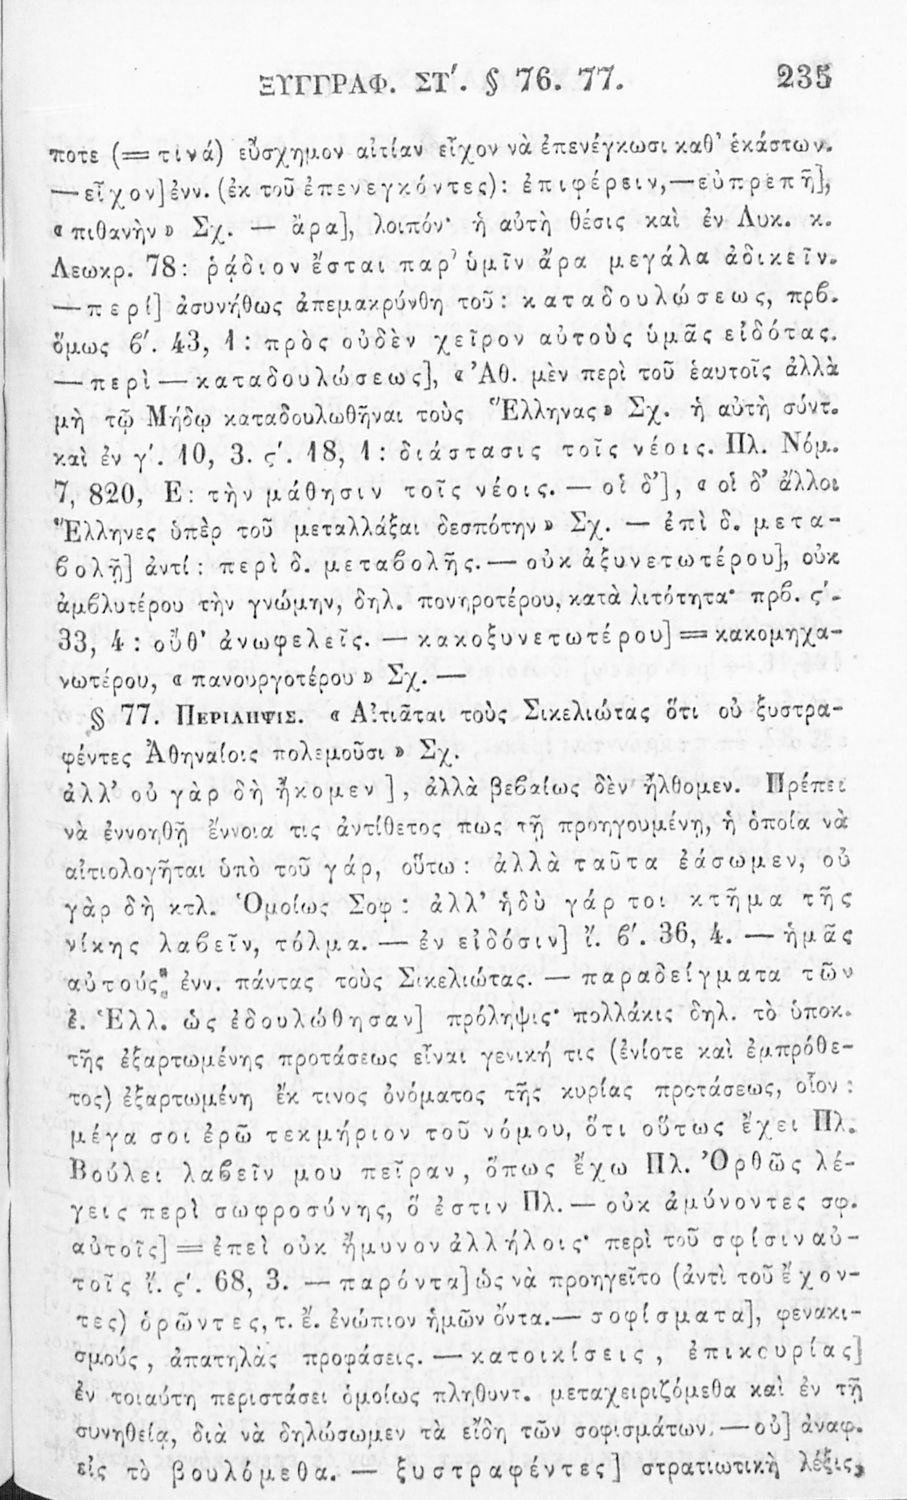 ΞΥΓΓΡΑΦ. ΣΤ′. § 76. 77. 235
ποτε (= τινά) εὔσχημον αἰτίαν εἶχον νὰ ἐπενέγκωσι καθ' ἑκάστων.
— εἶχον] ἐνν. (ἐκ τοῦ ἐπενεγκόντες): ἐπιφέρειν, — εὐπρεπῆ],
«πιθανὴν» Σχ. — ἄρα], λοιπόν· ἡ αὐτὴ θέσις καὶ ἐν Λυκ. κ.
Λεωκρ. 78: ῥᾴδιον ἔσται παρ' ὑμῖν ἄρα μεγάλα ἀδικεῖν.
— περί] ἀσυνήθως ἀπεμακρύνθη τοῦ: καταδουλώσεως, πρβ.
ὅμως β′. 43, 1: πρὸς οὐδὲν χεῖρον αὐτοὺς ὑμᾶς εἰδότας.
— περὶ — καταδουλώσεως], «Ἀθ. μὲν περὶ τοῦ ἑαυτοῖς ἀλλὰ
μὴ τῷ Μήδῳ καταδουλωθῆναι τοὺς Ἕλληνας» Σχ. ἡ αὐτὴ σύντ.
καὶ ἐν γ′. 10, 3. ς′. 18, 1: διάστασις τοῖς νέοις. Πλ. Νόμ.
7, 820, Ε: τὴν μάθησιν τοῖς νέοις. — οἱ δ'], «οἱ δ' ἄλλοι
Ἕλληνες ὑπὲρ τοῦ μεταλλάξαι δεσπότην» Σχ. — ἐπὶ δ. μετα-
βολῇ] ἀντί: περὶ δ. μεταβολῆς. — οὐκ ἀξυνετωτέρου], οὐκ
ἀμβλυτέρου τὴν γνώμην, δηλ. πονηροτέρου, κατὰ λιτότητα· πρβ. ς′.
33, 4: οὔθ' ἀνωφελεῖς. — κακοξυνετωτέρου] = κακομηχα-
νωτέρου, «πανουργοτέρου» Σχ. —
§ 77. ΠΕΡΙΛΗΨΙΣ. «Αἰτιᾶται τοὺς Σικελιώτας ὅτι οὐ ξυστρα-
φέντες Ἀθηναίοις πολεμοῦσι» Σχ.
ἀλλ' οὐ γὰρ δὴ ἥκομεν], ἀλλὰ βεβαίως δὲν ἤλθομεν. Πρέπει
νὰ ἐννοηθῇ ἔννοια τις ἀντίθετος πως τῇ προηγουμένῃ, ἡ ὁποία νὰ
αἰτιολογῆται ὑπὸ τοῦ γάρ, οὕτω: ἀλλὰ ταῦτα ἐάσωμεν, οὐ
γὰρ δὴ κτλ. Ὁμοίως Σοφ: ἀλλ' ἡδὺ γάρ τοι κτῆμα τῆς
νίκης λαβεῖν, τόλμα. — ἐν εἰδόσιν] ἴ. β′. 36, 4. — ἡμᾶς
αὐτούς] ἐνν. πάντας τοὺς Σικελιώτας. — παραδείγματα τῶν
ἐ. Ἑλλ. ὡς ἐδουλώθησαν] πρόληψις· πολλάκις δηλ. τὸ ὑποκ.
τῆς ἐξαρτωμένης προτάσεως εἶναι γενική τις (ἐνίοτε καὶ ἐμπρόθε-
τος) ἐξαρτωμένη ἔκ τινος ὀνόματος τῆς κυρίας προτάσεως, οἷον:
μέγα σοι ἐρῶ τεκμήριον τοῦ νόμου, ὅτι οὕτως ἔχει Πλ.
Βούλει λαβεῖν μου πεῖραν, ὅπως ἔχω Πλ. Ὀρθῶς λέ-
γεις περὶ σωφροσύνης, ὅ ἐστιν Πλ. — οὐκ ἀμύνοντες σφ.
αὐτοῖς] = ἐπεὶ οὐκ ἤμυνον ἀλλήλοις· περὶ τοῦ σφίσιν αὐ-
τοῖς ἴ. ς′. 68, 3. — παρόντα] ὡς νὰ προηγεῖτο (ἀντὶ τοῦ ἔχον-
τες) ὁρῶντες, τ. ἔ. ἐνώπιον ἡμῶν ὄντα. — σοφίσματα], φενακι-
σμούς, ἀπατηλὰς προφάσεις. — κατοικίσεις, ἐπικουρίας]
ἐν τοιαύτῃ περιστάσει ὁμοίως πληθυντ. μεταχειριζόμεθα καὶ ἐν τῇ
συνηθείᾳ, διὰ νὰ δηλώσωμεν τὰ εἴδη τῶν σοφισμάτων. — οὐ] ἀναφ.
εἰς τὸ βουλόμεθα. — ξυστραφέντες] στρατιωτικὴ λέξις,